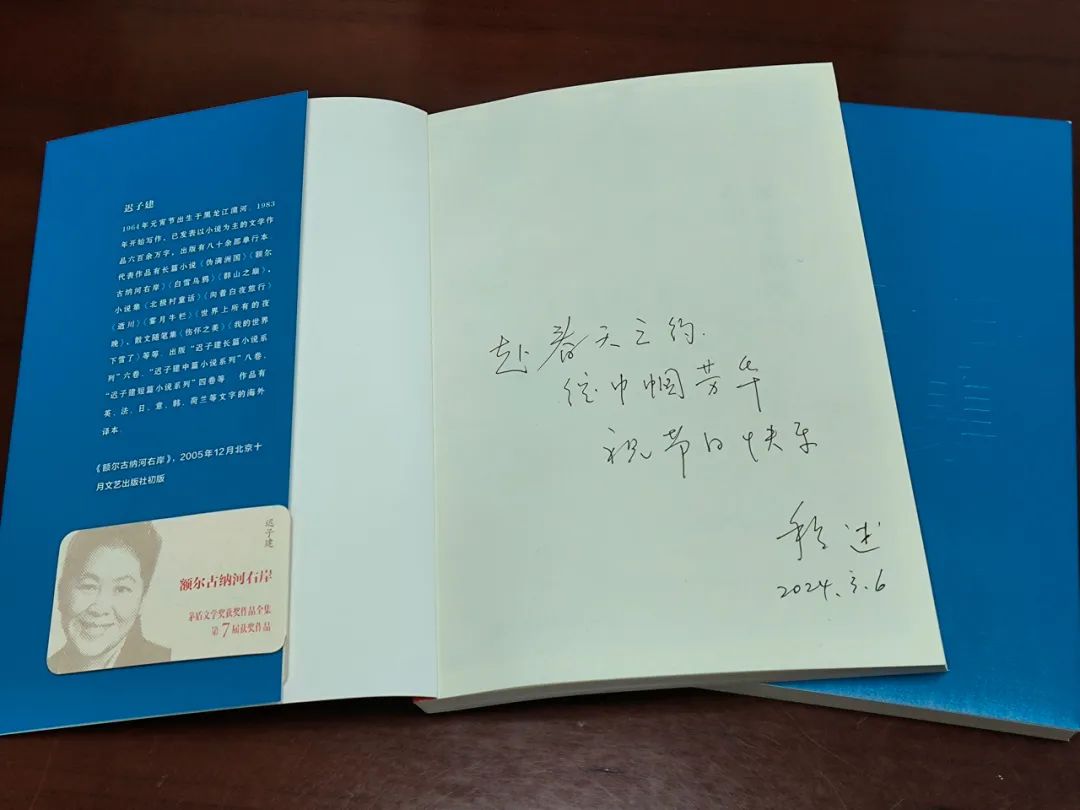 迟子建
1964年元宵节出生于黑龙江漠河。1983
年开始写作，已发表以小说为主的文学作
品六百余万字，出版有八十余部单行本
代表作品有长篇小说《伪满洲国》《额尔
古纳河右岸》《白雪乌鸦》《群山之巅》，
小说集《北极村童话》《向着白夜旅行》
《逝川》《雾月牛栏》《世界上所有的夜
晚》，散文随笔集《伤怀之美》《我的世界
下雪了》等等。出版“迟子建长篇小说系
列”六卷，“迟子建中篇小说系列”八卷，
“迟子建短篇小说系列”四卷等 作品有
英、法、日、意、韩、荷兰等文字的海外
译本。
《额尔古纳河右岸》，2005年12月北京十
月文艺出版社初版
迟子建
额尔古纳河右岸
茅盾文学奖获奖作品全集
第7届获奖作品
赴春天之约.
绽巾帼芳华
祝节日快乐
2024.3.6